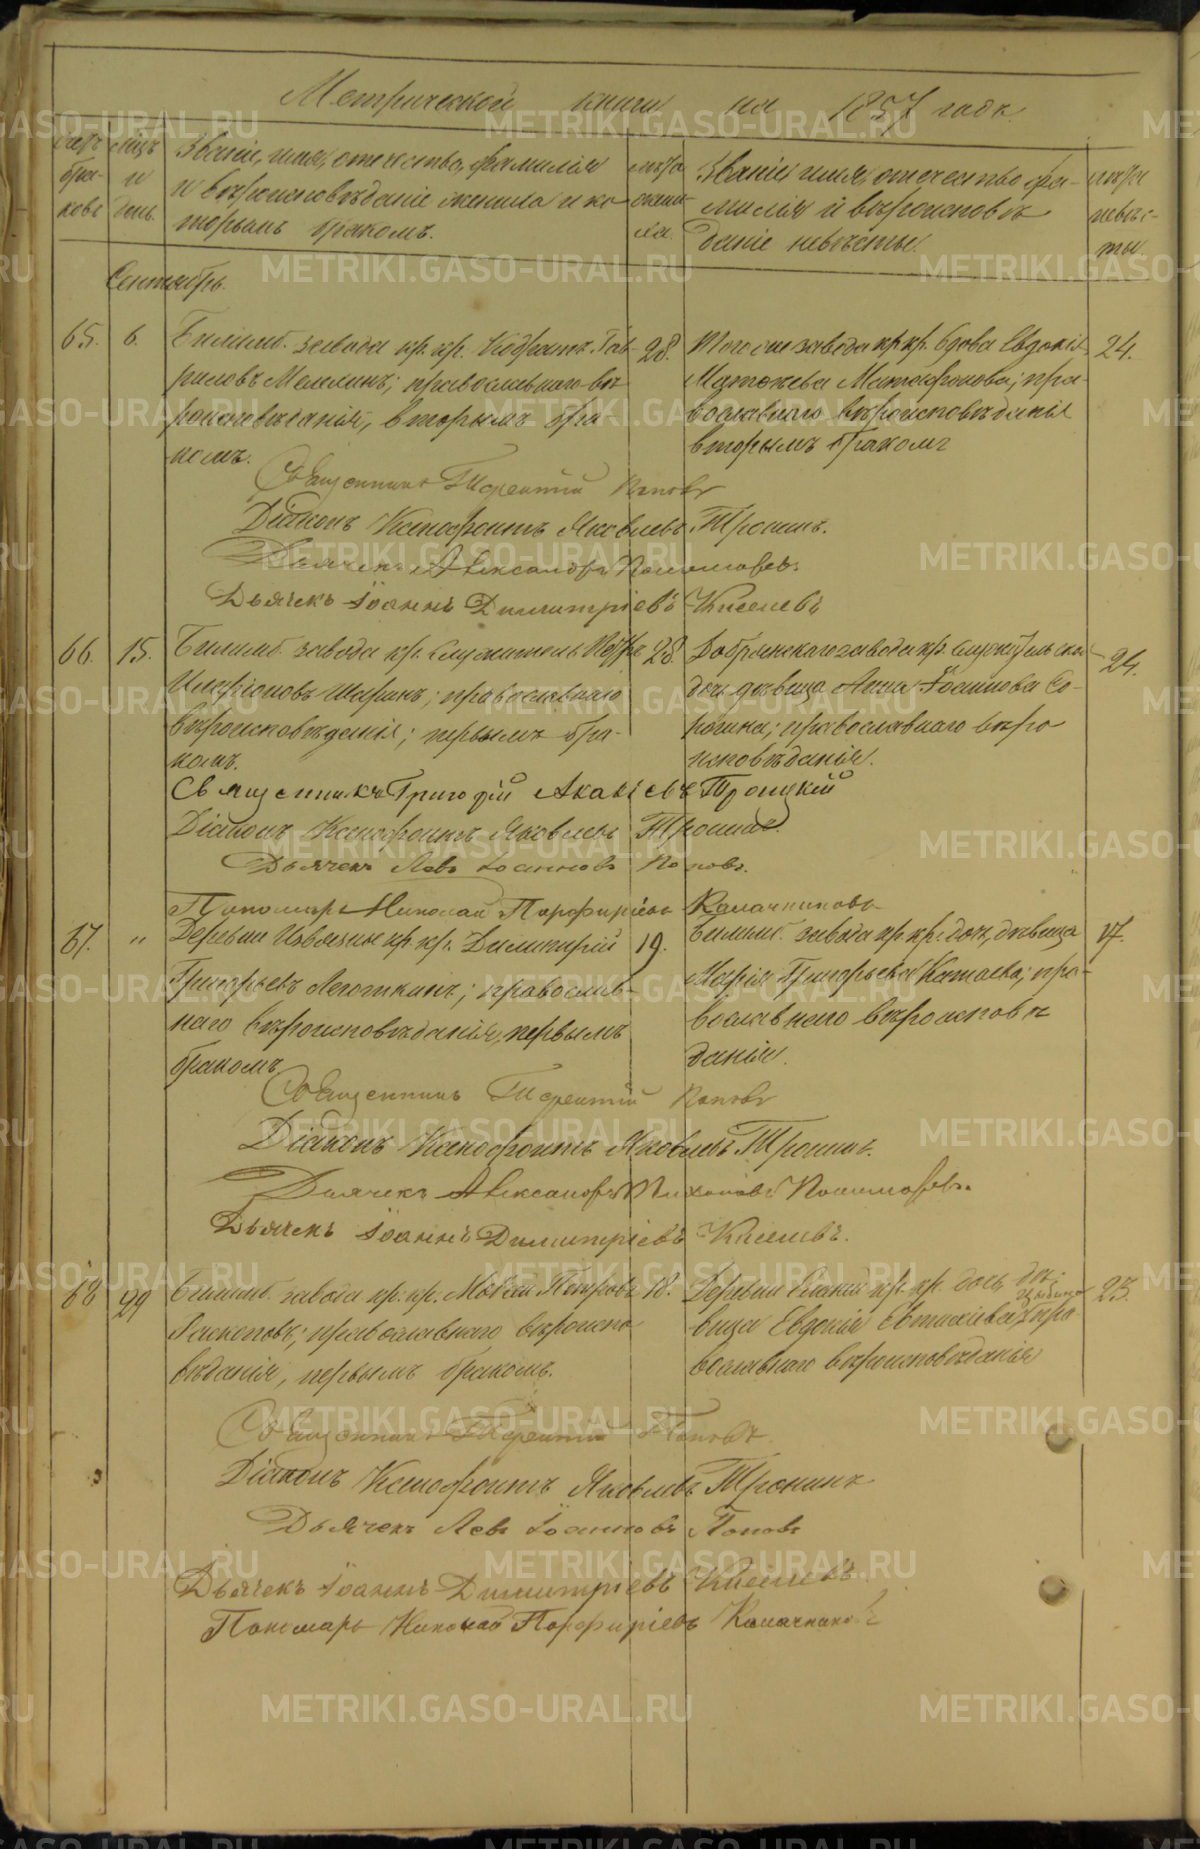 Метрической книги на 1857 годъ
Счетъ бра-ковъ
Мѣсяцъ и день
Званіе, имя, отечество, фамилія
и вѣроисповѣданіе жениха и ко-
торымъ бракомъ.
лѣта
жени-
ха.
Званіе имя, отечество фа-
милія и вѣроисповѣ
даніе невѣсты.
лѣта
невѣс-
ты
Сентябрь.
65. 6. Билимб. завода кр. кр. Кодратъ Гав-
риловъ; православнаго вѣ-
роисповѣданія, вторымъ бра-
комъ.
28.
Того же завода кр. кр. вдова Евдокія
Матѳеева; пра-
вославнаго вѣроисповѣданія
вторымъ бракомъ
24.
Священникъ Терентій Поповъ
Діаконъ Ксенофонтъ Яковлевъ Тронинъ.
Дьячекъ Александръ
Дьячекъ Іоаннъ Димитріевъ Киселевъ
66. 15. Билимб. завода кр. служитель Петръ
Шаринъ; православнаго
вѣроисповѣданія; первымъ бра-
комъ.
28.
Добрянскаго завода кр. служительска
дочь дѣвица Анна Іосифова Со-
рокина; православнаго вѣро
исповѣданія.
24.
Священникъ Григорій Акакіевъ Троицкій
Діаконъ Ксенофонтъ Яковлевъ Тронинъ.
Дьячекъ Левъ Іоанновъ Поповъ.
Пономарь Николай Порфиріевъ Калачниковъ
67. " Деревни кр. кр. Димитрій
Григорьевъ Леготкинъ; православ-
наго вѣроисповѣданія, первымъ
бракомъ.
19.
Билимб. завода кр. кр. доч. дѣвица
Марія Григорьева Катаева; пра-
вославнаго вѣроисповѣ
данія.
17.
Священникъ Терентій Поповъ
Діаконъ Ксенофонтъ Яковлевъ Тронинъ.
Дьячекъ Александръ Тихоновъ
Дьячекъ Іоаннъ Димитріевъ Киселевъ.
68 29 Билимб. завода кр. кр. Мокей Петровъ
Раскеповъ; православнаго вѣроиспо
вѣданія, первымъ бракомъ.
18.
Деревни кр. кр. дочь дѣ-
вица Евдокія; пра
вославнаго вѣроисповѣданія
23.
Священникъ Терентій Поповъ.
Діаконъ Ксенофонтъ Яковлевъ Тронинъ
Дьячекъ Левъ Іоанновъ Поповъ
Дьячекъ Іоаннъ Димитріевъ Киселевъ
Пономарь Николай Порфиріевъ Калачниковъ
METRIKI.GASO-URAL.RU